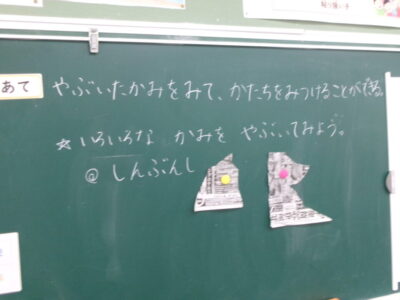 あて
やぶいたかみをみて、かたちをみつけることができる。
☆いろいろな かみを やぶいてみよう。
◎しんぶんし